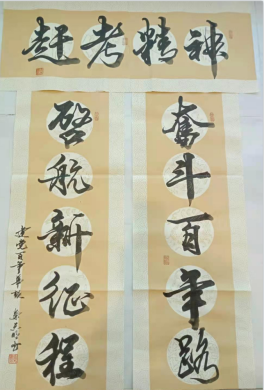 赶考精神
奮斗百年路
啓航新征程
建党百年华诞